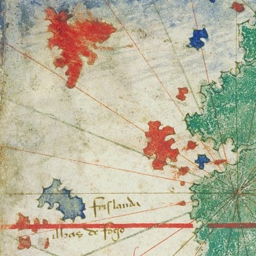 frislanda
ilhas de fogo